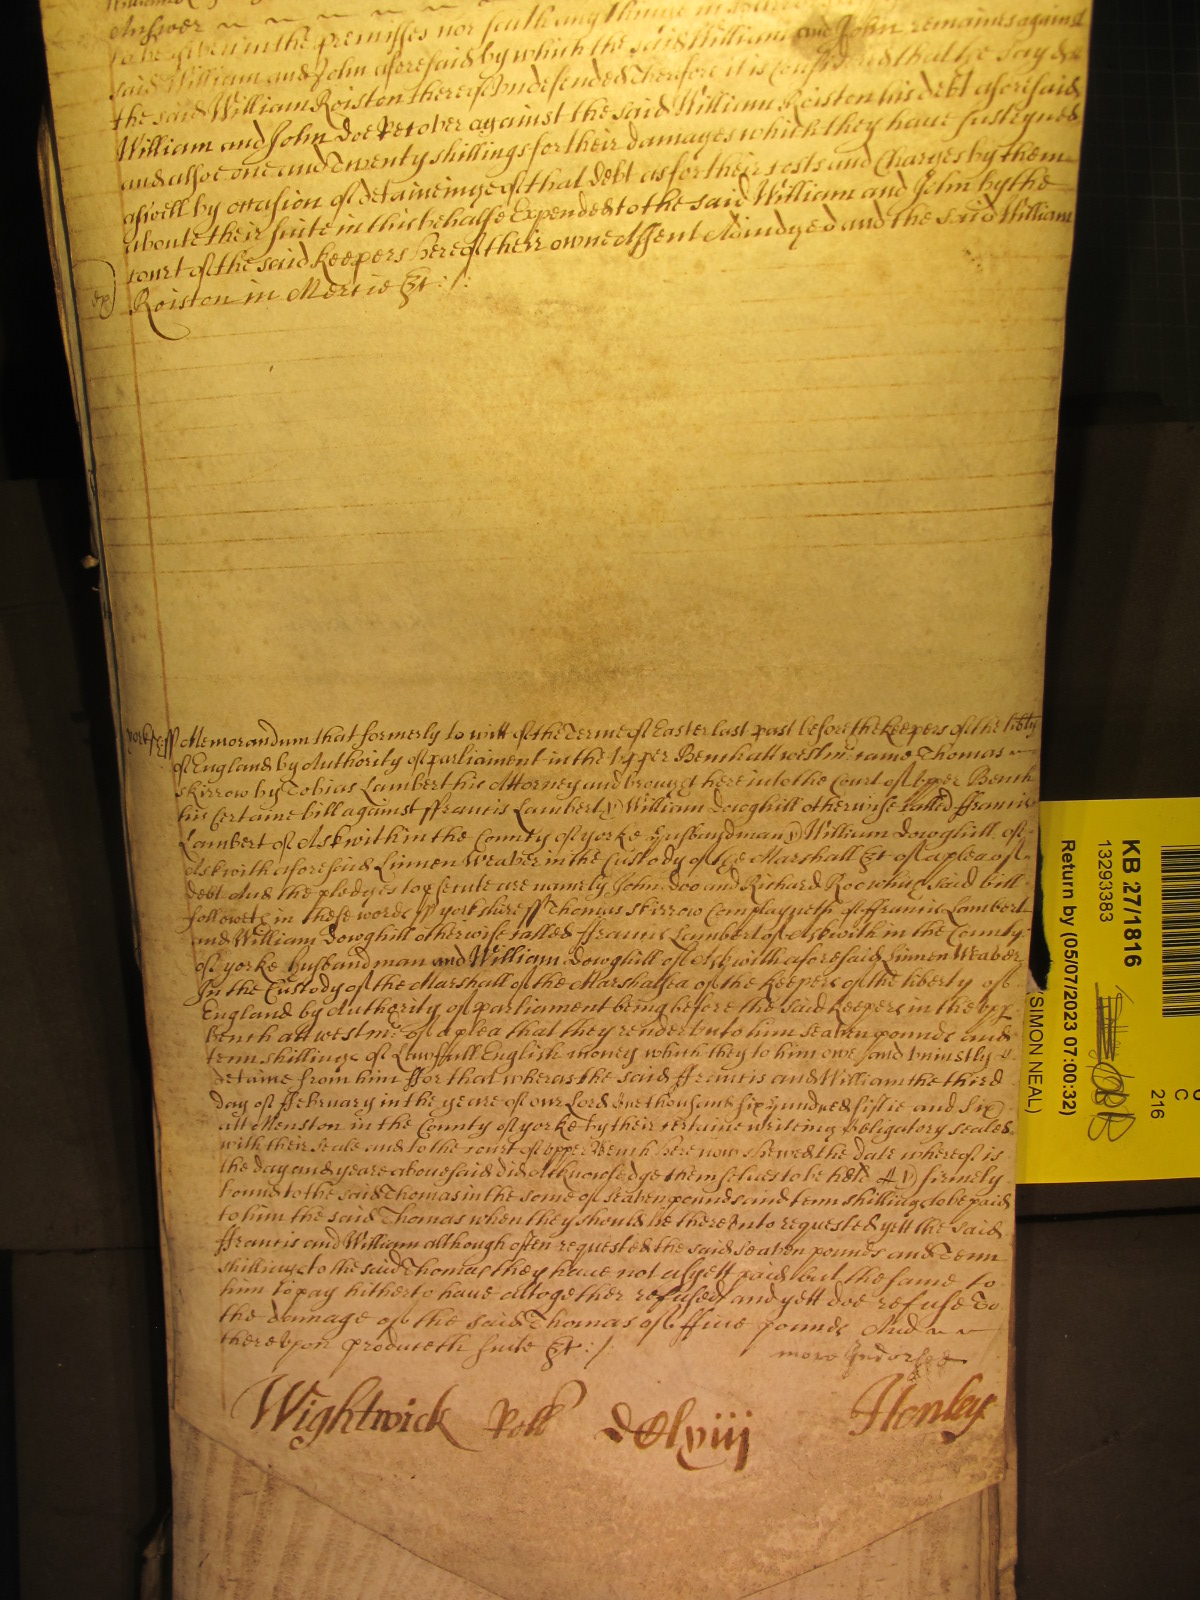 Answer
to be given in the premisses nor sayth any thinge in
said William and John aforesaid by which the said William and John remaines against
the said William Roiston thereof Undefended Therefore it is Considered that the sayd
William and John doe Recover against the said William Roiston his debt aforesaid
and alsoe one and Twenty shillings for their damages which they have sustayned
aswell by occasion of detaineinge of that debt as for their costs and Charges by them
aboute their suite in this behalfe Expended to the said William and John by the
court of the said keepers here of their owne assent Adiudged and the said William
Roiston in Mercie &c :/:
yorksh ss Memorandum that formerly to witt of the Terme of Easter last past before the keepers of the libty
of England by Authority of parliament in the Upper Bench att westmr came Thomas
Skirrow by Tobias Lambert his Attorney and brought here into the Court of Upper Bench
his Certaine bill against ffrancis Lambert & William Dowghill otherwise called ffrancis
Lambert of Askwith in the County of yorke Husbandman & William Dowghill of
Askwith aforesaid Linnen Weaver in the Custody of the Marshall &c of a plea of
debt And the pledges to psecute are namely John Doo and Richard Roo which said bill
followeth in these words ss yorkshire ss Thomas Skirrow Complayneth of ffrancis Lambert
and William Dowghill otherwise called ffrancis Lambert of Askwith in the County
of yorke husbandman and William Dowghill of Askwith aforesaid Linnen Weaver
In the Custody of the Marshall of the Marshalsea of the keepers of the liberty of
England by Authority of parliament being before the said keepers in the upp
bench att westmr of a plea that they render unto him seaven pounds and
tenn shillings of Lawfull English money which they to him owe and uniustly
detaine from him ffor that wheras the said ffrancis and William the third
day of ffebruary in the yeare of our Lord One thousand six hundred fiftie and Six
att Menston in the County of yorke by their certaine writeing obligatory sealed
with their seale and to the court of upper Bench here now shewed the date whereof is
the day and yeare abovesaid did Acknowledge themselves to be held & firmely
bound to the said Thomas in the some of seaven pounds and tenn shillings to be paid
to him the said Thomas when they should be thereunto requested yett the said
ffrancis and William although often requested the said seaven pounds and Tenn
shillings to the said Thomas they have not as yett paid but the same to
him to pay hitherto have altogether refused and yett doe refuse To
the damage of the said Thomas of ffive pounds And
thereupon produceth suite &c :/:
more Indorsed
Wightwick Roll dClviij Henley
KB 27/1816
13293383
Return by (05/07/2023 07:00:32)
(SIMON NEAL)
C
216